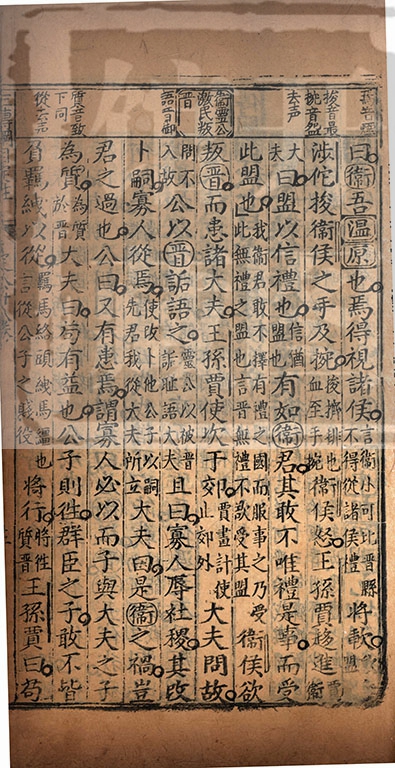 捘音最
捥音盌
去声
衛靈公
激民叛
晉
語音御
質音致
下同
從去声
曰衛吾溫原也焉得視諸侯言衛小可比晉縣不得從諸侯禮將歃
涉佗捘衛侯之手及捥捘擠排也血至手捥衛侯怒王孫賈趨進賈衛
大夫曰盟以信禮也信猶盟也有如衛君其敢不唯禮是事而受
此盟也我衛君敢不擇有禮之國而服事之乃受此無禮之盟也言晉無禮不欲受其盟衛侯欲
叛晉而患諸大夫王孫賈使次于郊賈畫計使止郊外大夫問故
問不入故公以晉詬語之靈公以被晉詬恥語大夫且曰寡人辱社稷其改
卜嗣寡人從焉使改卜他公子以嗣先君我從大夫所立大夫曰是衛之禍豈
君之過也公曰又有患焉謂寡人必以而子與大夫之子
為質為質於晉大夫曰苟有益也公子則往群臣之子敢不皆
負羈絏以從羈馬絡頭絏馬韁也言從公子之賤役將行將往質晉王孫賈曰苟